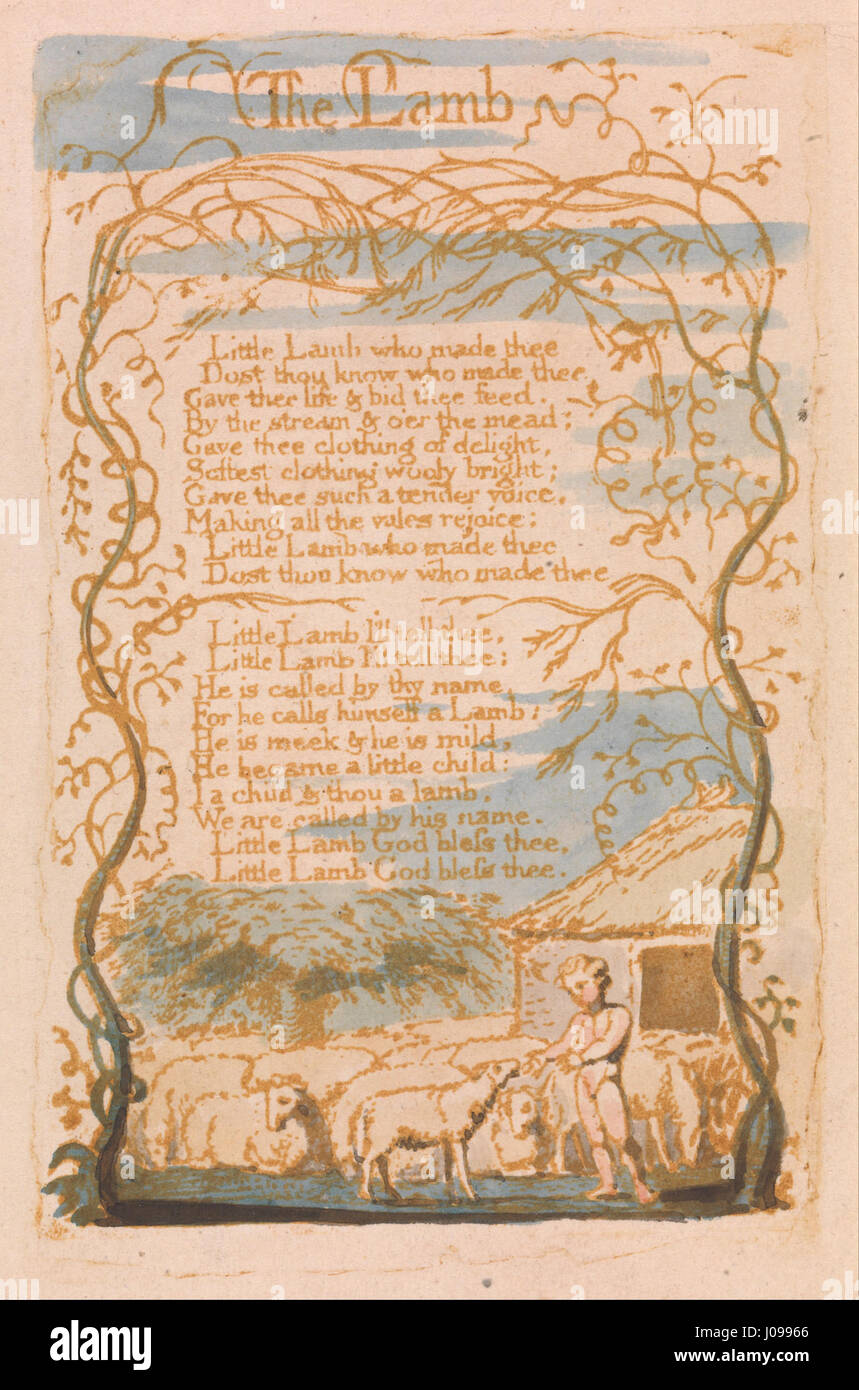 The Lamb
Little Lamb who made thee
Dost thou know who made thee
Gave thee life & bid thee feed.
By the stream & o'er the mead;
Gave thee clothing of delight,
Softest clothing wooly bright;
Gave thee such a tender voice,
Making all the vales rejoice:
Little Lamb who made thee
Dost thou know who made thee
Little Lamb I'll tell thee,
Little Lamb I'll tell thee;
He is called by thy name,
For he calls himself a Lamb:
He is meek & he is mild,
He became a little child:
I a child & thou a lamb,
We are called by his name.
Little Lamb God bleſs thee,
Little Lamb God bleſs thee.
alamy
Image ID: J09966
www.alamy.com